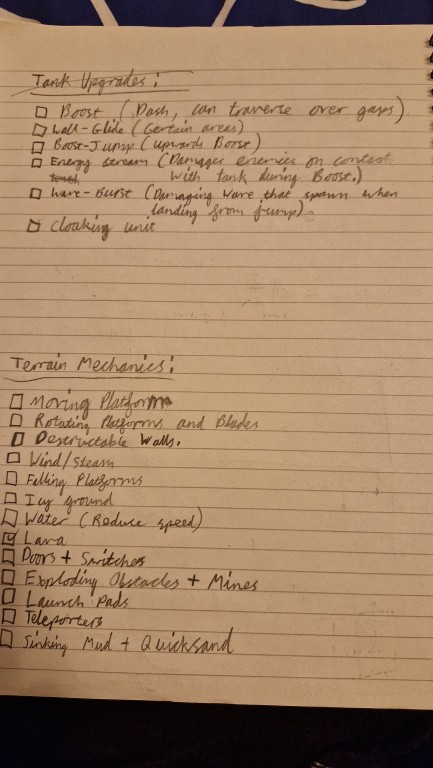 Tank Upgrades:
Boost (Dash, can traverse over gaps)
Wall-Glide (Certain areas)
Boost-Jump (Upwards Boost)
Energy scream (Damages enemies on contact
with tank during Boost.)
Wave-Burst (Damaging wave that spawn when
landing from jump).
Cloaking unit
Terrain Mechanics:
Moving Platforms
Rotating Platforms and Blades
Destructable Walls.
Wind/Steam
Falling Platforms
Icy ground
Water (Reduce speed)
Lava
Doors + Switches
Exploding Obstacles + Mines
Launch Pads
Teleporters
Sinking Mud + Quicksand